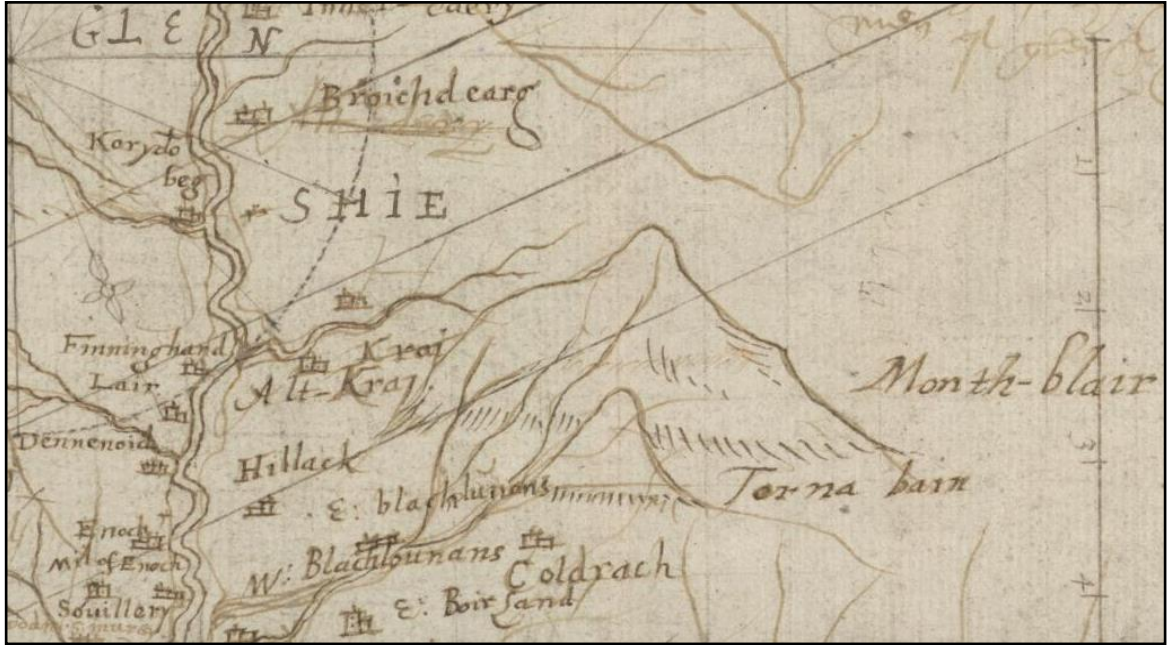 GLE
N
Broichdearg
Koryto
beg
SHIE
Finninghard
Lair
Kraj
Alt-Kraj.
Month-blair
Dennenoid
Hillack
E: blachlunans
Torna bain
Enoch
Mil of Enoch
W: Blachlounans
Coldrach
Souillery
E: Boirland
2
3
4